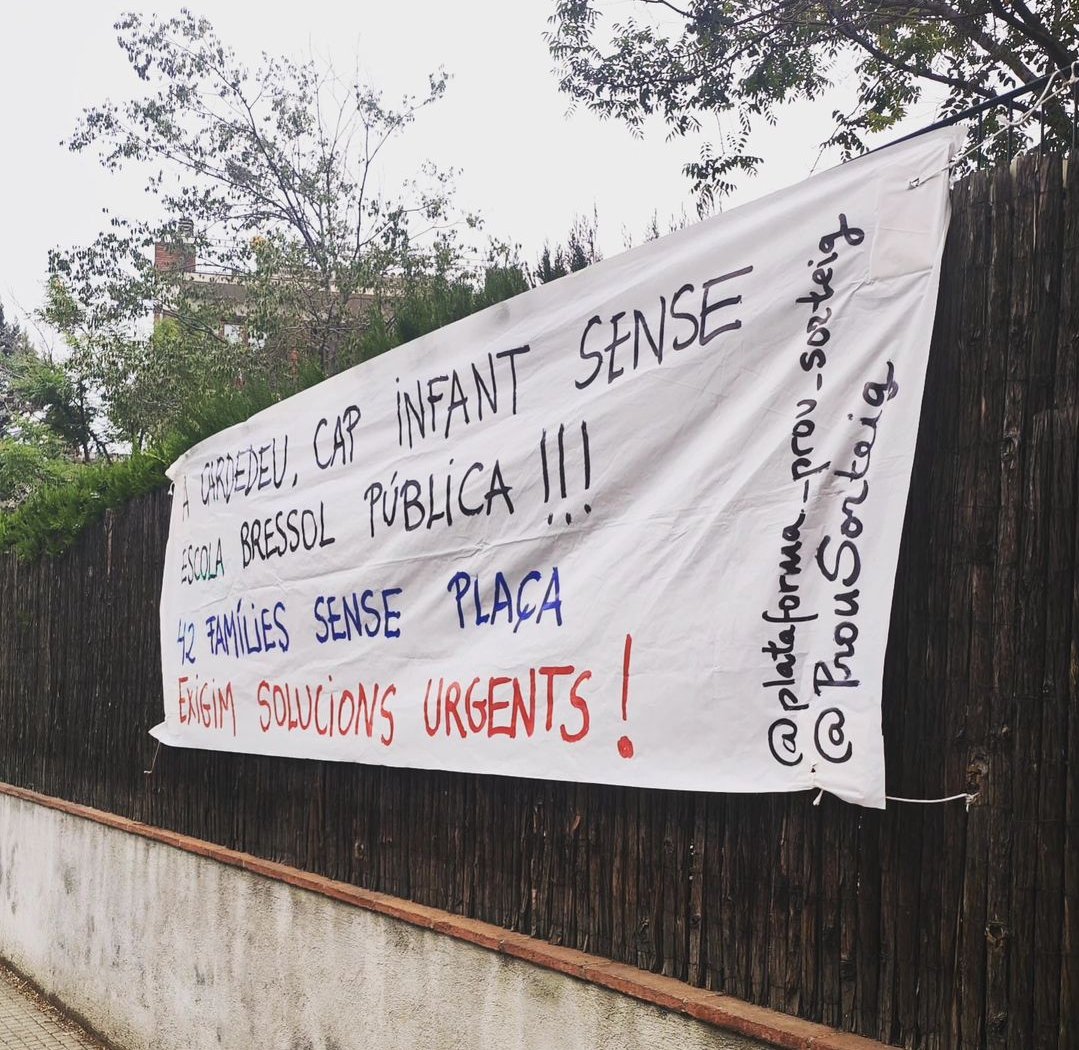 A CARDEDEU, CAP INFANT SENSE
ESCOLA BRESSOL PÚBLICA !!!
42 FAMÍLIES SENSE PLAÇA
EXIGIM SOLUCIONS URGENTS !
@plataforma_prou_sorteig
@ProuSorteig